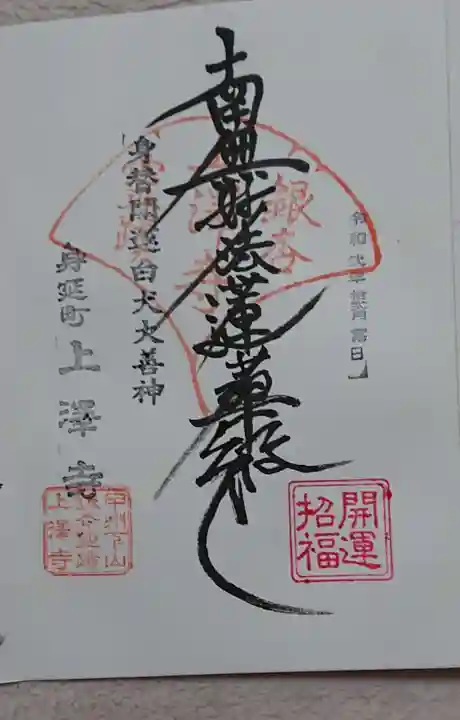 令和
南無妙法蓮華経
銀杏
身替開運白犬大善神
身延町 上澤寺
開運
招福
甲州下山
上澤寺